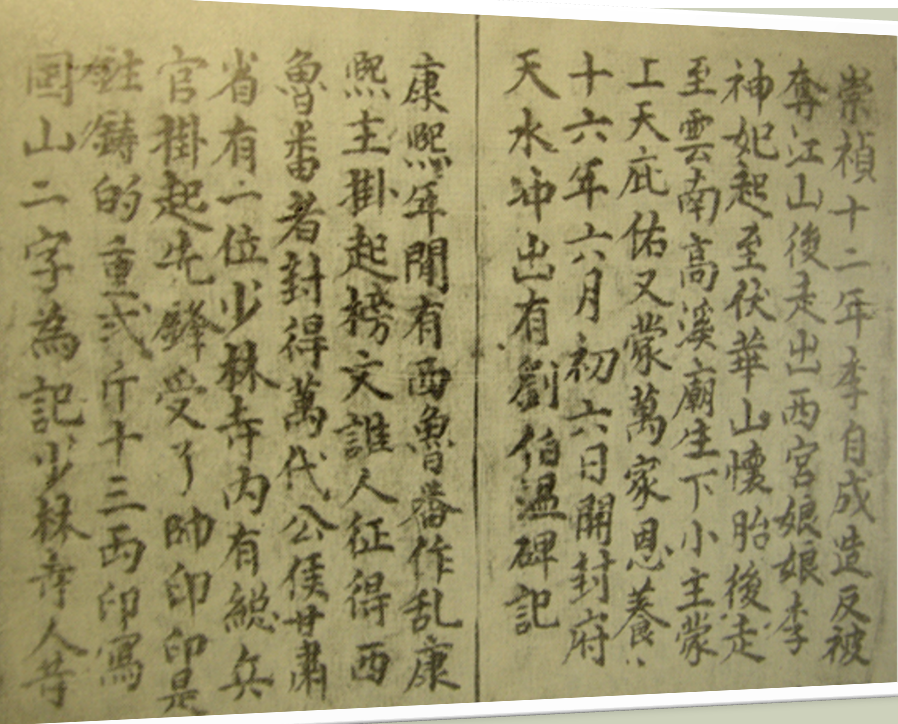 崇禎十二年李自成造反被
奪江山後走出西宮娘娘李
神妃起至伏華山懷胎後走
至雲南高溪廟生下小主蒙
上天庇佑又蒙萬家恩養
十六年六月初六日開封府
天水冲出有劉伯溫碑記
康熙年間有西魯番作乱康
熙主掛起榜文誰人征得西
魯番者封得萬代公侯甘肅
省有二位少林寺内有總兵
官掛起先鋒受了帥印印是
鉄鑄的重弍斤十三両印寫
囯山二字為記少林寺人昔